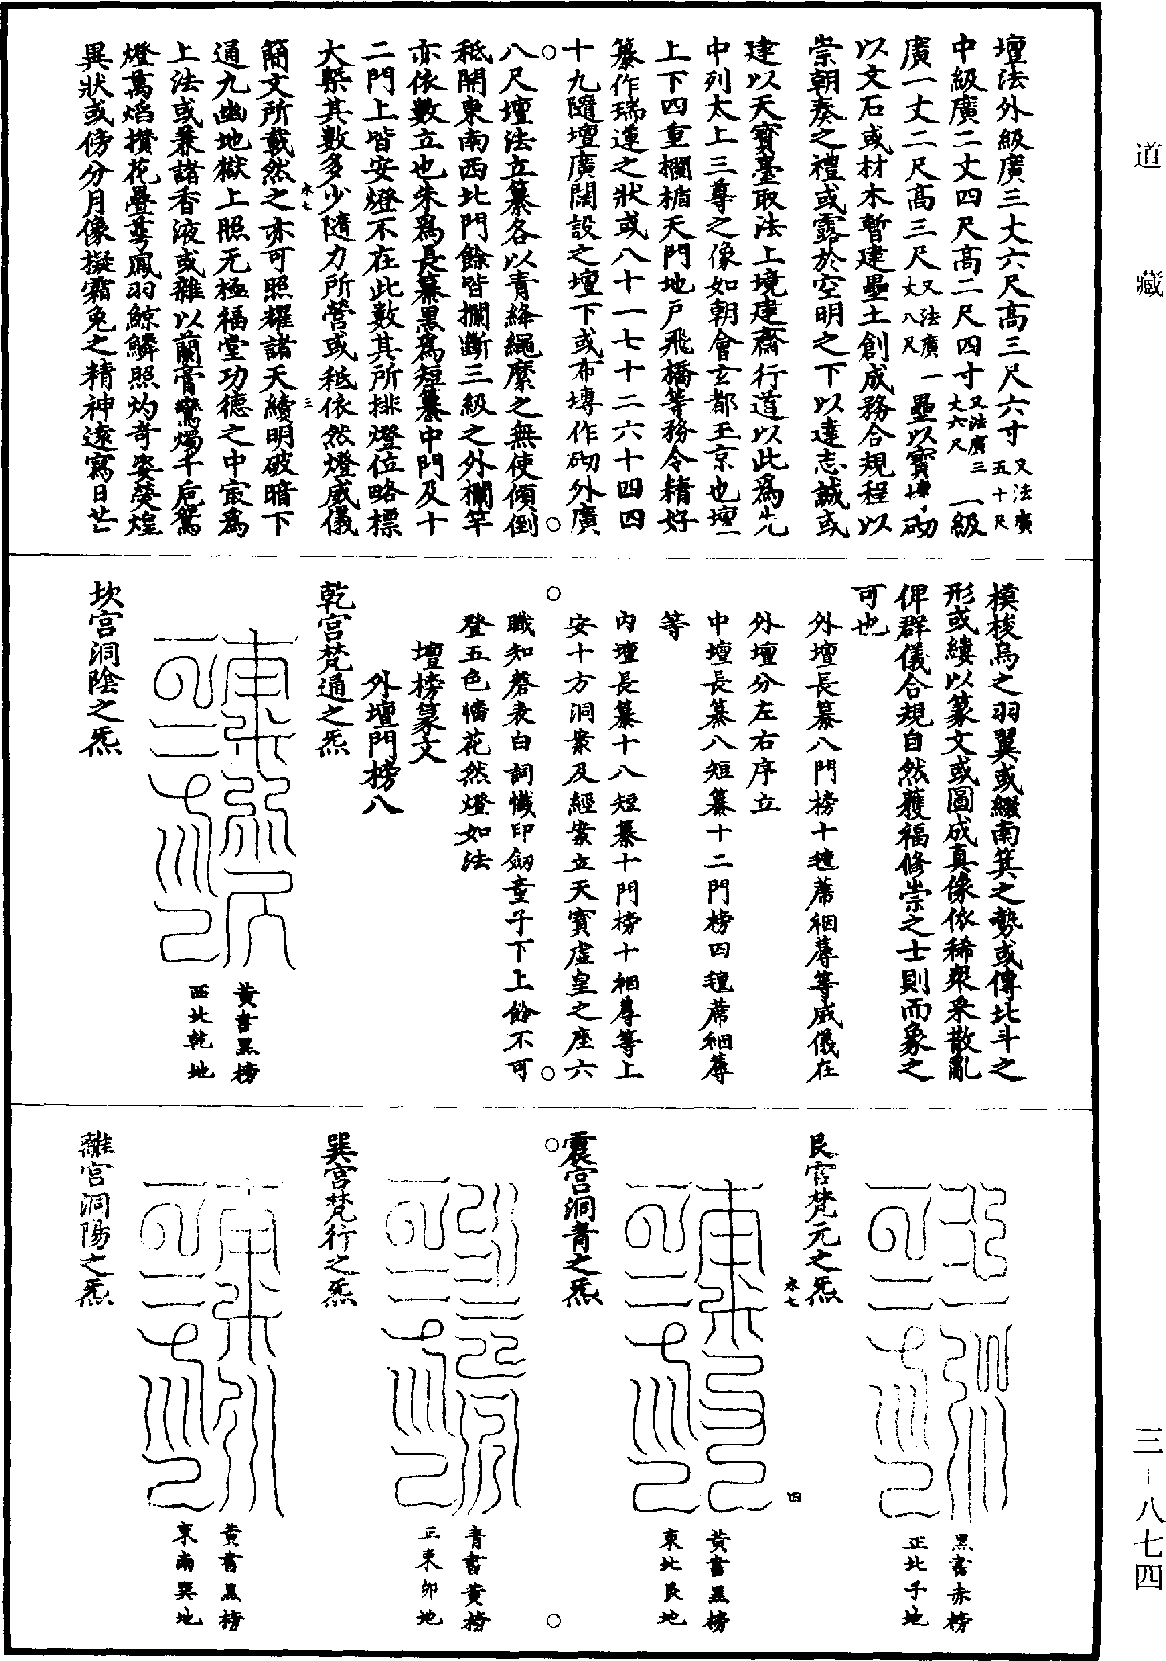 壇法外級廣三丈六尺高三尺六寸又法廣五十尺
中級廣二丈四尺高二尺四寸又法廣三丈六尺一級
廣一丈二尺高三尺又法廣丈八尺一壘以寶塼砌
以文石或材木暫建壘土創成務合規程以
崇朝奏之禮或露於空明之下以達志誠或
建以天寶臺取法上境建齋行道以此為先
中列太上三尊之像如朝會玄都玉京也壇
上下四重欄楯天門地戶飛橋等務令精好
纂作瑞蓮之狀或八十一七十二六十四四
十九隨壇廣闊設之壇下或布塼作砌外廣
八尺壇法立纂各以青絳繩縻之無使傾倒
秪開東南西北門餘皆攔斷三級之外欄竿
亦依數立也朱為長纂黑為短纂中門及十
二門上皆安燈不在此數其所排燈位略標
大槩其數多少隨力所營或秪依然燈威儀
簡文所載然之亦可照耀諸天續明破暗下
通九幽地獄上照无極福堂功德之中寂為
上法或兼諸香液或雜以蘭膏鸞燭千巵鴛
燈萬焰攢花疊蕚鳳羽鯨鱗照灼奇姿熒煌
異狀或傍分月像擬霜兔之精神遠寫日芒
模梭烏之羽翼或綴南箕之勢或傳北斗之
形或縷以篆文或圖成真像依稀衆采散亂
俾群儀合規自然獲福修崇之士則而象之
可也
外壇長纂八門榜十氊蓆裀蓐等威儀在
外壇分左右序立
中壇長纂八短纂十二門榜四氊蓆裀蓐
等
內壇長纂十八短纂十門榜十裀蓐等上
安十方洞案及經案立天寶虛皇之座六
職知磬表白詞懺印劒童子下上餘不可
登五色幡花然燈如法
壇榜篆文
外壇門榜八
乾宮梵通之炁
黃書黑榜
西北乾地
坎宮洞陰之炁
黑書赤榜
正北子地
艮宮梵元之炁
黃書黑榜
東北艮地
震宮洞青之炁
青書黃榜
正東卯地
巽宮梵行之炁
黃書黑榜
東南巽地
離宮洞陽之炁
道藏
三-八七四